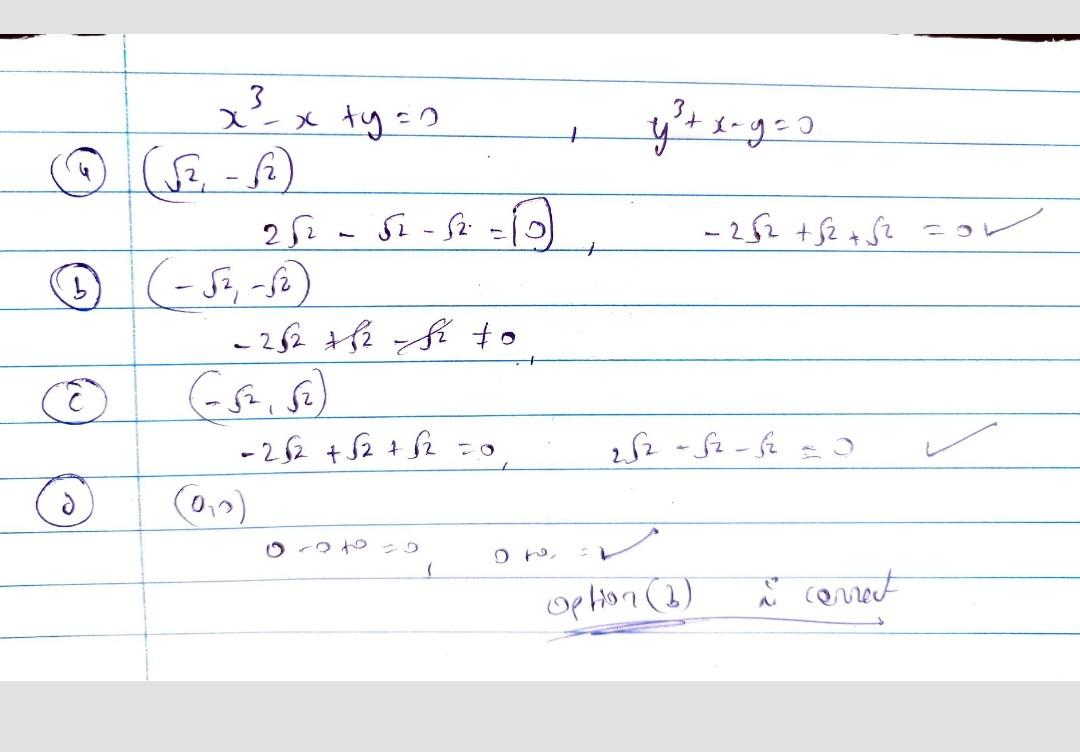 x³ - x + y = 0 , y³ + x - y = 0
(a) (√2, -√2)
2√2 - √2 - √2 = 0 , -2√2 + √2 + √2 = 0 ✓
(b) (-√2, -√2)
-2√2 + √2 - √2 ≠ 0,
(c) (-√2, √2)
-2√2 + √2 + √2 = 0, 2√2 - √2 - √2 = 0 ✓
(d) (0,0)
0 - 0 + 0 = 0, 0 + 0. = ✓
option (b) is correct